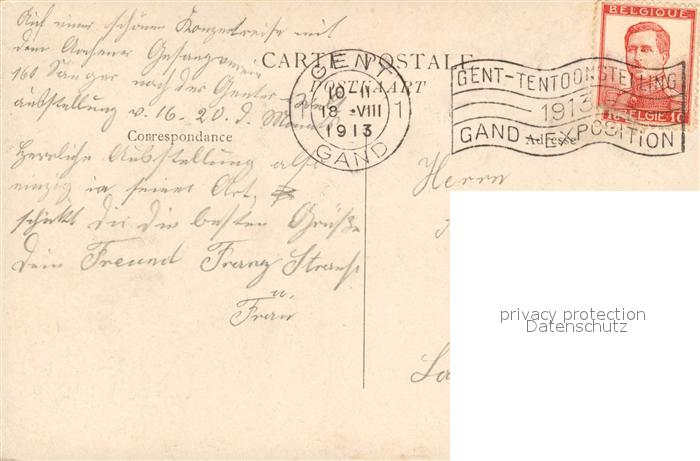 Auf einer schönen Konzertreise mit
dem Aachener Gesangverein
160 Sänger nach der Genter Welt
ausstellung v. 16.-20. d. Monats
Herrliche Ausstellung also
einzig in seiner Art,
schickt dir die besten Grüße
dein Freund Franz
u.
Frau
CARTE POSTALE
POSTKAART
Correspondance
Adresse
GENT
1 10-11 1
18 VIII
1913
GAND
GENT-TENTOONSTELLING
1913
GAND-EXPOSITION
BELGIQUE
10 BELGIË 10
Herrn
privacy protection
Datenschutz